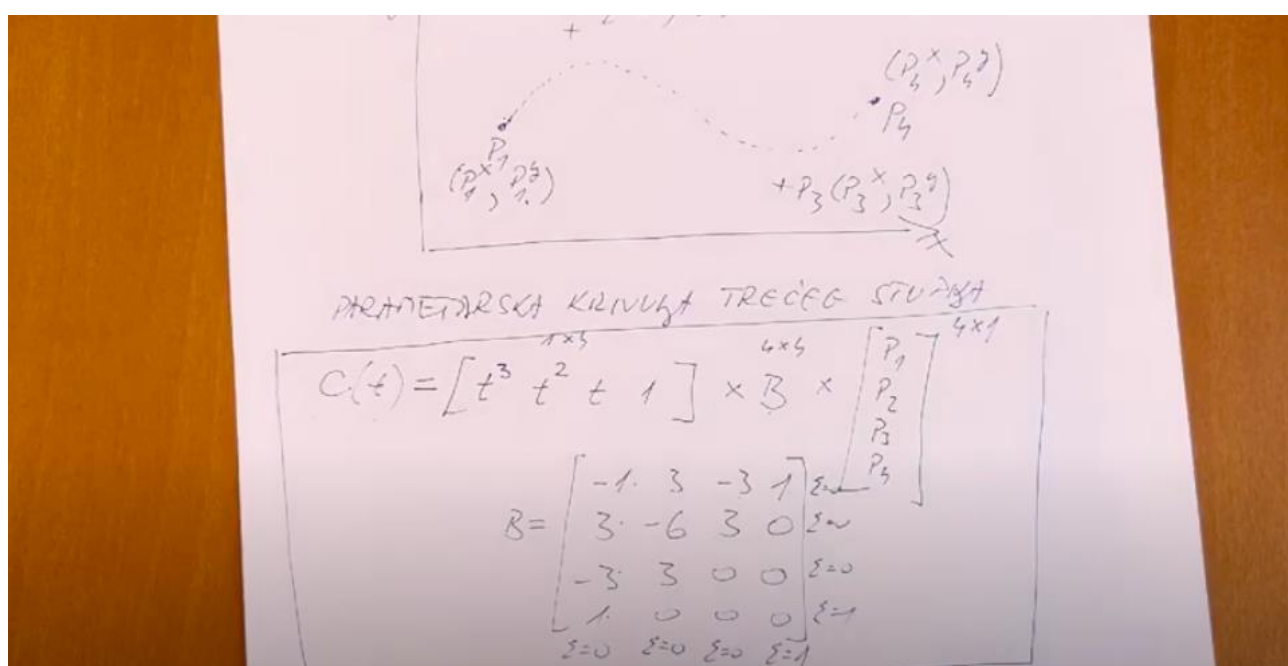 (P₄ˣ, P₄ʸ)
P₄
P₁
(P₁ˣ, P₁ʸ)
+ P₃ (P₃ˣ, P₃ʸ)
x
PARAMETARSKA KRIVULJA TREĆEG STUPNJA
1×4 4×4 4×1
C(t) = [t³ t² t 1] × B × [P₁
P₂
P₃
P₄]
B = [-1 3 -3 1] Σ=0
3 -6 3 0 Σ=0
-3 3 0 0 Σ=0
1 0 0 0 Σ=1
Σ=0 Σ=0 Σ=0 Σ=1